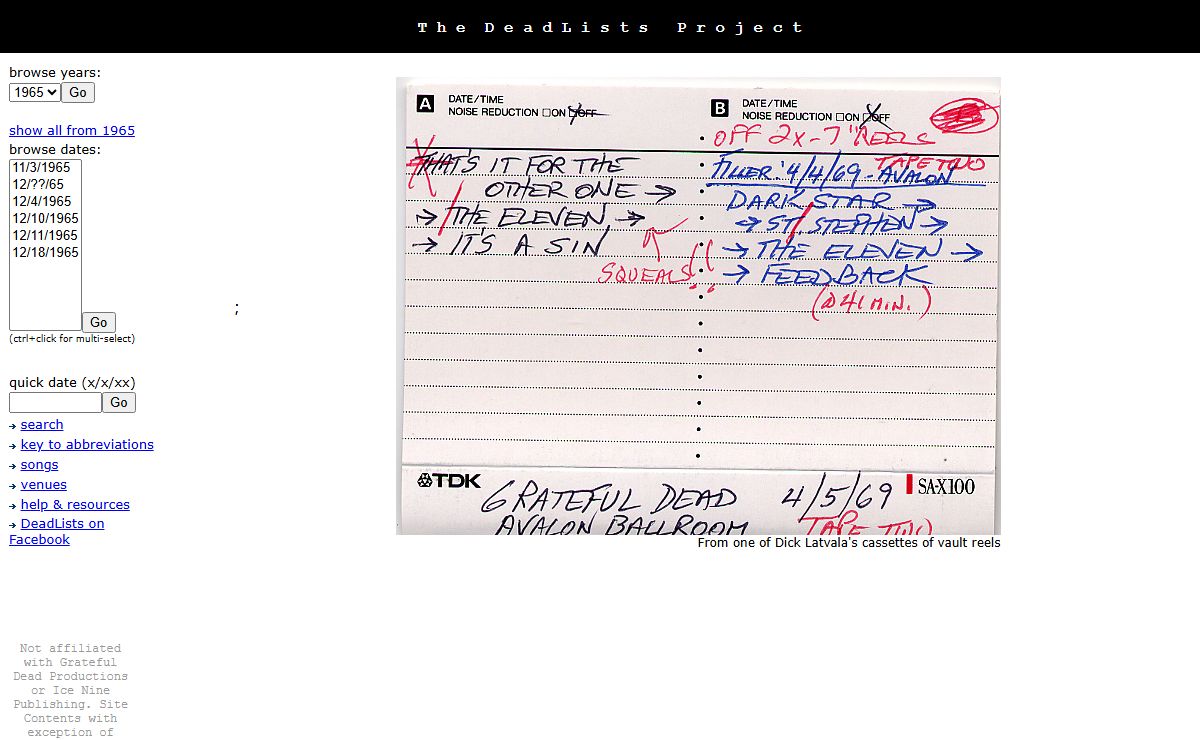 The DeadLists Project
browse years:
1965 Go
show all from 1965
browse dates:
11/3/1965
12/??/65
12/4/1965
12/10/1965
12/11/1965
12/18/1965
Go
(ctrl+click for multi-select)
quick date (x/x/xx)
Go
search
key to abbreviations
songs
venues
help & resources
DeadLists on
Facebook
Not affiliated
with Grateful
Dead Productions
or Ice Nine
Publishing. Site
Contents with
exception of
;
A DATE/TIME
NOISE REDUCTION □ON □OFF
THAT'S IT FOR THE
OTHER ONE →
→ THE ELEVEN →
→ IT'S A SIN
SQUEALS!!
B DATE/TIME
NOISE REDUCTION □ON □OFF
OFF 2X-7" REELS
TAPE TWO
FILLER: '4/4/69-AVALON
DARK STAR →
→ ST. STEPHEN →
→ THE ELEVEN →
→ FEEDBACK
(@41 MIN.)
TDK GRATEFUL DEAD 4/5/69 SA-X100
AVALON BALLROOM TAPE TWO
From one of Dick Latvala's cassettes of vault reels